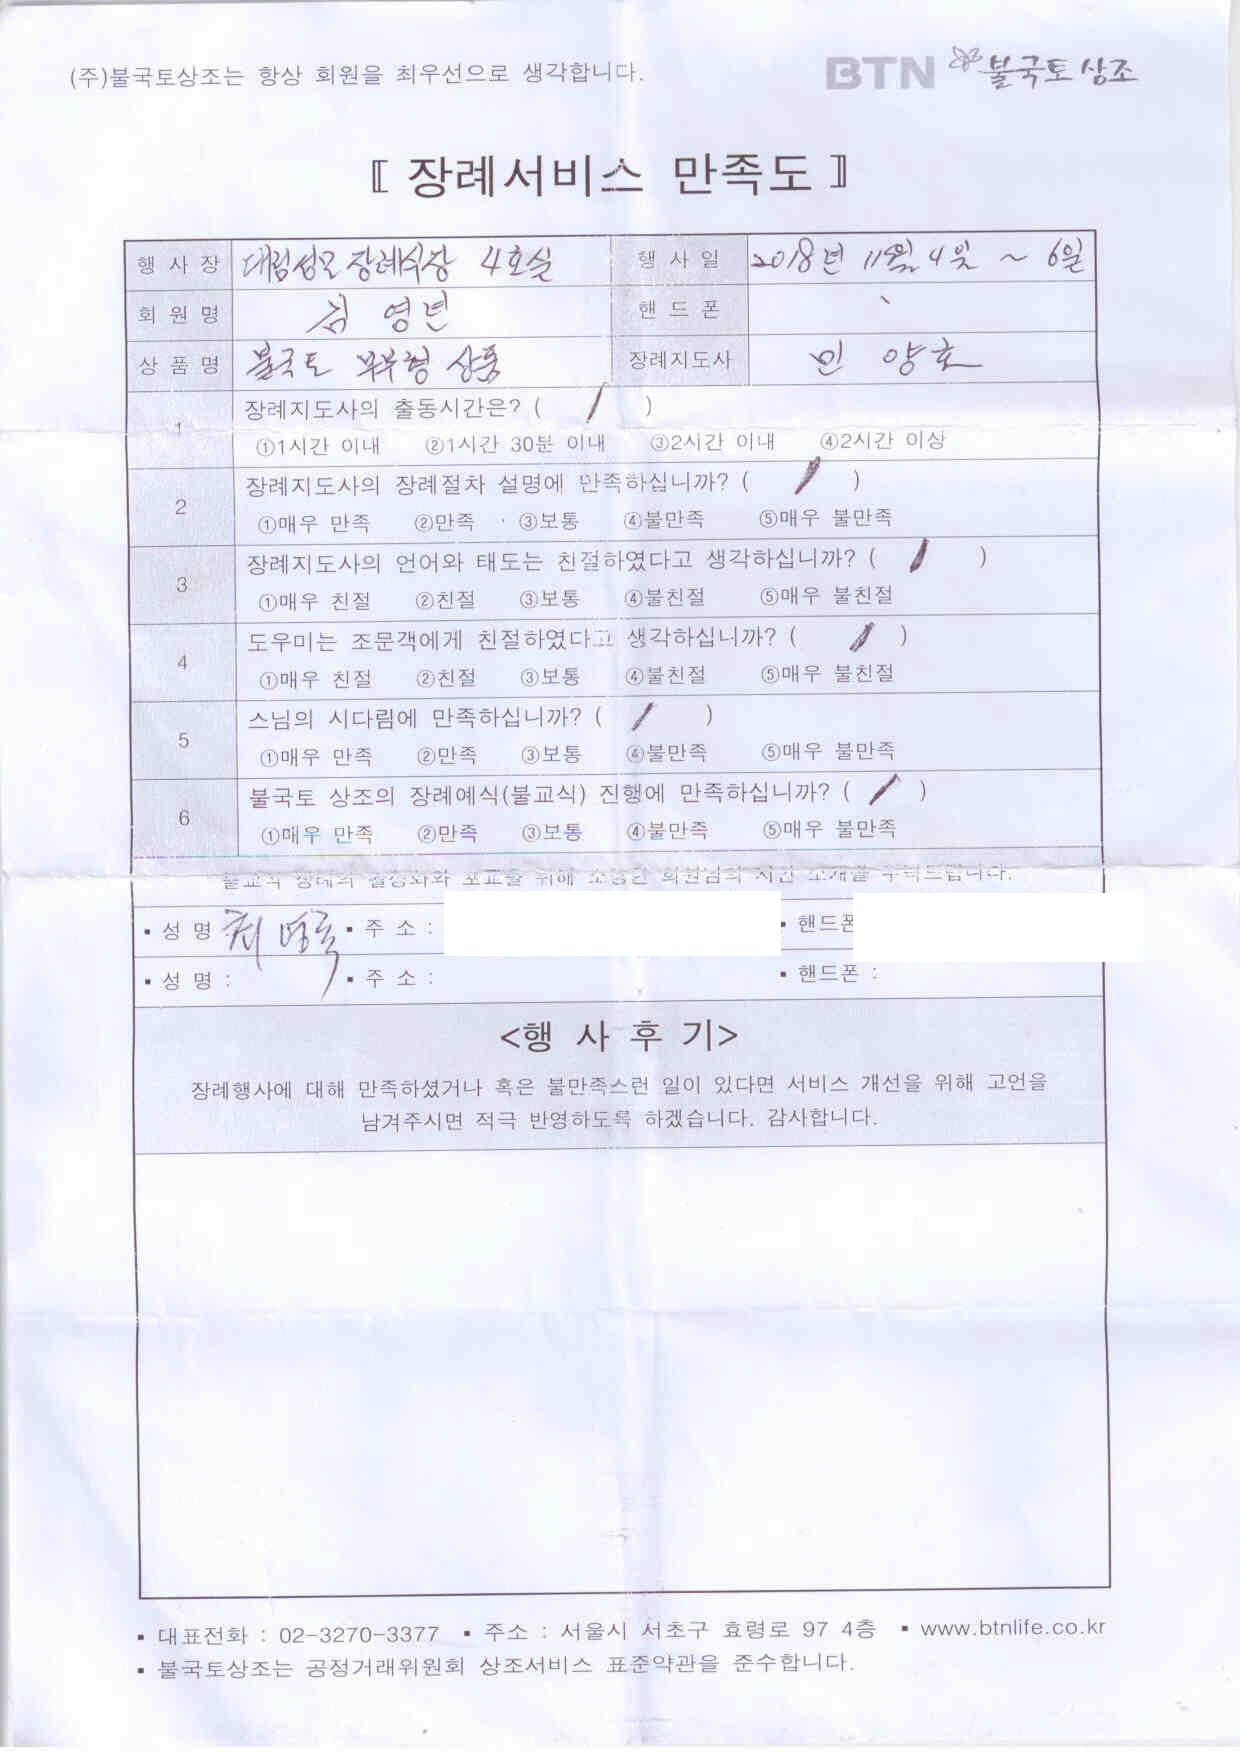 (주)불국토상조는 항상 회원을 최우선으로 생각합니다.
BTN 불국토상조
〖 장례서비스 만족도 〗
행 사 장 대림성모장례식장 4호실 행 사 일 2018년 11월 4일 ~ 6일
회 원 명 김 영년 핸 드 폰
상 품 명 불국토 부부형 상품 장례지도사 민 양호
1 장례지도사의 출동시간은? ( / )
①1시간 이내 ②1시간 30분 이내 ③2시간 이내 ④2시간 이상
2 장례지도사의 장례절차 설명에 만족하십니까? ( / )
①매우 만족 ②만족 ③보통 ④불만족 ⑤매우 불만족
3 장례지도사의 언어와 태도는 친절하였다고 생각하십니까? ( / )
①매우 친절 ②친절 ③보통 ④불친절 ⑤매우 불친절
4 도우미는 조문객에게 친절하였다고 생각하십니까? ( / )
①매우 친절 ②친절 ③보통 ④불친절 ⑤매우 불친절
5 스님의 시다림에 만족하십니까? ( / )
①매우 만족 ②만족 ③보통 ④불만족 ⑤매우 불만족
6 불국토 상조의 장례예식(불교식) 진행에 만족하십니까? ( / )
①매우 만족 ②만족 ③보통 ④불만족 ⑤매우 불만족
불교식 장례의 활성화와 포교를 위해 소중한 회원님의 지인 소개를 부탁드립니다.
▪ 성 명 최 ▪ 주 소 : ▪ 핸드폰
▪ 성 명 : ▪ 주 소 : ▪ 핸드폰 :
<행 사 후 기>
장례행사에 대해 만족하셨거나 혹은 불만족스런 일이 있다면 서비스 개선을 위해 고언을
남겨주시면 적극 반영하도록 하겠습니다. 감사합니다.
▪ 대표전화 : 02-3270-3377 ▪ 주소 : 서울시 서초구 효령로 97 4층 ▪ www.btnlife.co.kr
▪ 불국토상조는 공정거래위원회 상조서비스 표준약관을 준수합니다.